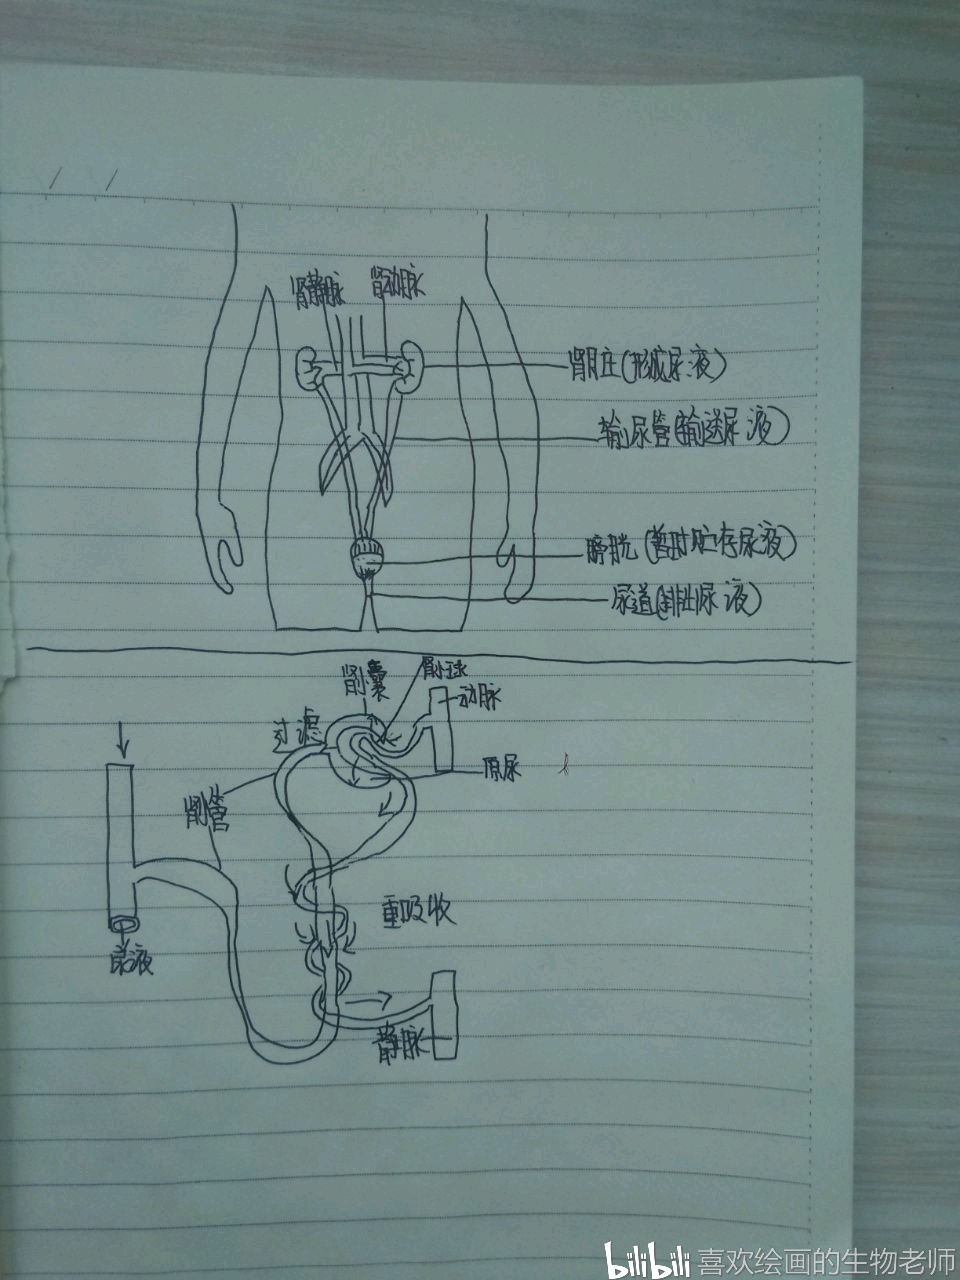 肾静脉 肾动脉
肾脏(形成尿液)
输尿管(输送尿液)
膀胱(暂时贮存尿液)
尿道(排出尿液)
肾小囊 肾小球
动脉
过滤
原尿
肾小管
重吸收
尿液
静脉
bilibili 喜欢绘画的生物老师